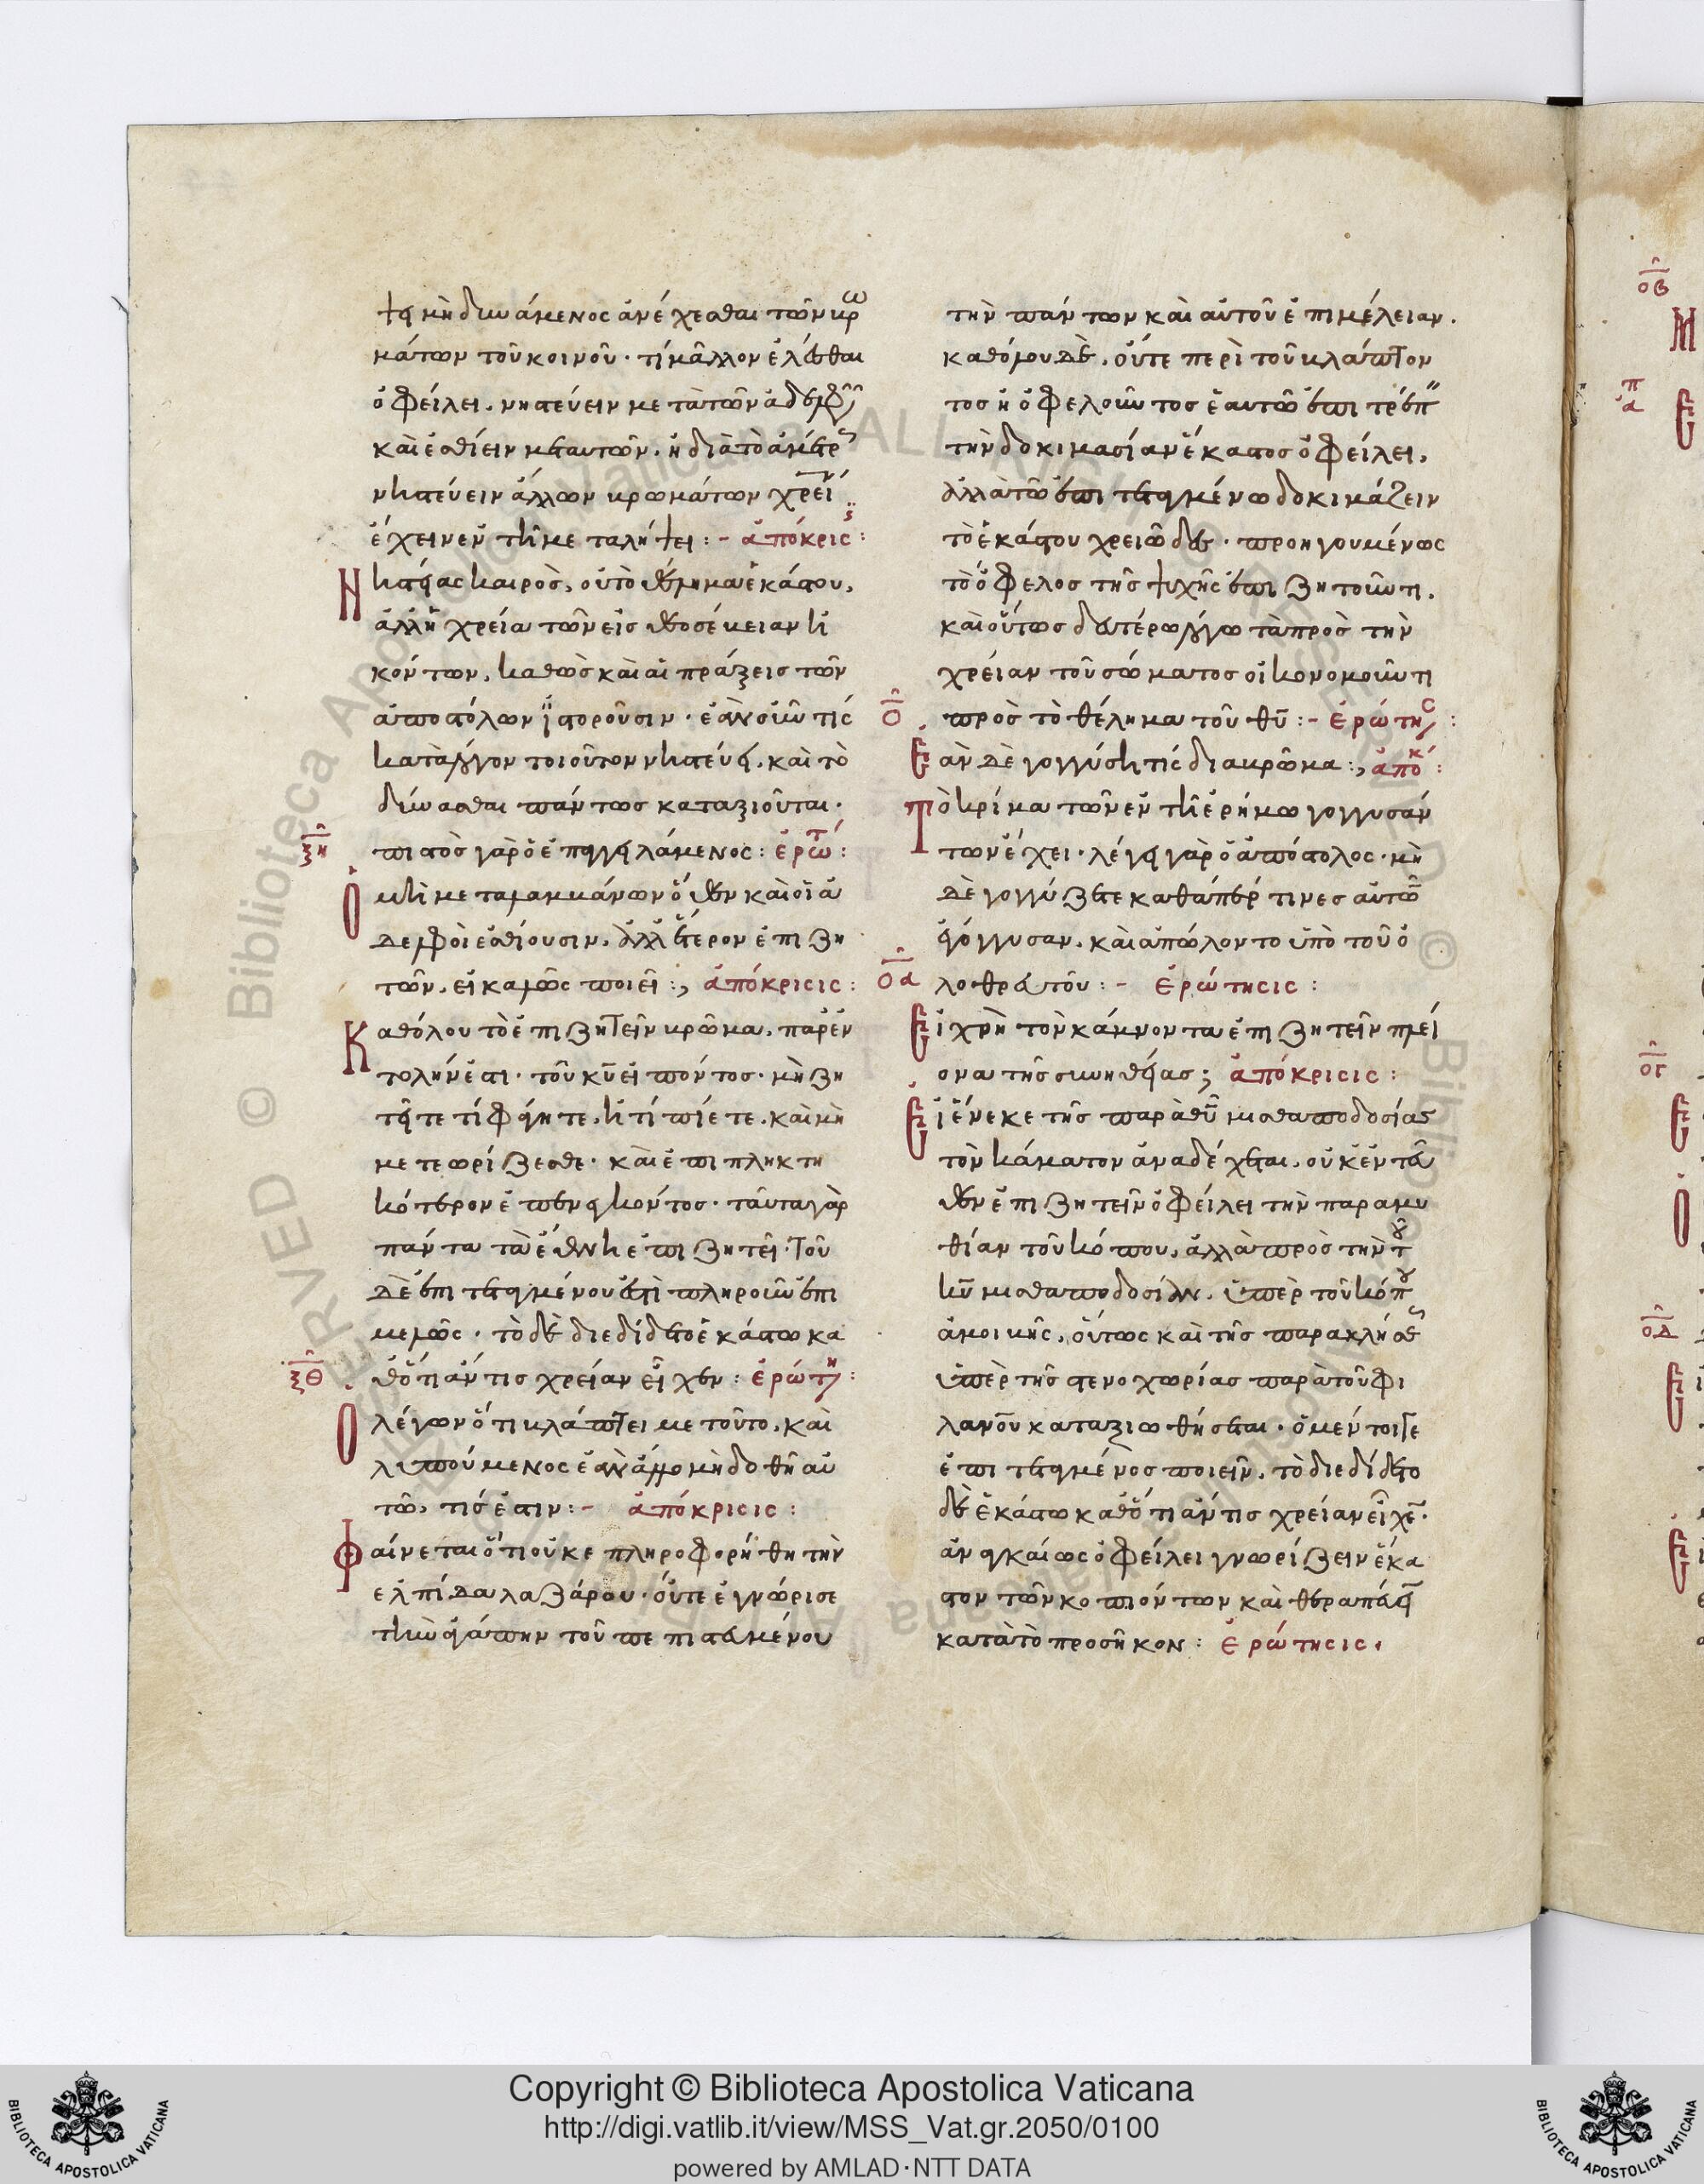 ψει μὴ δυνάμενος ἀνέχεσθαι τῶν βρω
μάτων τοῦ κοινοῦ· τί μᾶλλον ἑλέσθαι
ὀφείλει. νηστεύειν μετὰ τῶν ἀδελφῶν
καὶ ἐσθίειν μετ αυτῶν. ἢ διὰ τὸ ἀμέτρ
νηστεύειν ἄλλων βρωμάτων χρείαν
ἔχειν ἐν τῆ μεταλήψει :- ἀπόκρισ :
Νηστείας καιρὸς, οὐ τὸ θέλημα ἑκάστου,
ἀλλ ἡ χρεία τῶν εἰς θεοσέβειαν ἡ
κόντων, καθὼς καὶ αἱ πράξεις τῶν
ἀποστόλων ἱστοροῦσιν· ἐὰν οὖν τίς
κατὰ λόγον τοιοῦτον νηστεύει, καὶ τὸ
δύνασθαι πάντως καταξιοῦται·
ξη πιστὸς γὰρ ὁ ἐπαγγειλάμενος : ἐρώτ :
Ὁ μὴ μεταλαμβάνων ὅθεν καὶ οἱ ἀ
δελφοὶ ἐσθίουσιν, ἀλλ ἕτερον ἐπιζη
τῶν, εἰ καλῶς ποιεῖ :, ἀπόκρισις :
Καθόλου τὸ ἐπιζητεῖν βρῶμα, παρ ἐν
τολήν ἐστι· τοῦ κυ εἰπόντος· μὴ ζη
τεῖτε τί φάγητε, ἢ τί πίετε, καὶ μὴ
μετεωρίζεσθε· καὶ ἐπιπληκτη
κότερον ἐπενεγκόντος· ταῦτα γὰρ
πάντα τὰ ἔθνη ἐπιζητεῖ· τοῦ
δὲ ἐπιτεταγμένου ἐστὶ πληροῦν ἐπι
μελῶς· τὸ δὲ διεδίδετο ἑκάστω κα
ξθ θότι ἄν τις χρείαν εἶχεν : ἐρώτη :
Ὁ λέγων ὅτι βλάπτει με τοῦτο, καὶ
λυπούμενος ἐὰν ἄλλο μὴ δοθῆ αὐ
τῶ, τίς ἐστιν :- ἀπόκρισις :
Φαίνεται ὅτι οὐκ ἐπληροφορήθη τὴν
ελπίδα λαζάρου· οὔτε ἐγνώρισε
τὴν ἀγάπην τοῦ πεπιστευμένου
τὴν πάντων καὶ αὐτοῦ ἐπιμέλειαν.
καθόλου δὲ, οὔτε περὶ τοῦ βλάπτον
τος ἢ ὀφελοῦντος ἑαυτῶ ἐπιτρέπ
τὴν δοκιμασίαν ἕκαστος ὀφείλει,
ἀλλὰ τῶ ἐπιτεταγμένω δοκιμάζειν
τὸ ἑκάστου χρειῶδες· προηγουμένως
τὸ ὄφελος τῆς ψυχῆς ἐπιζητοῦντι.
καὶ οὕτως δευτέρω λόγω τὰ πρὸς τὴν
χρείαν τοῦ σώματος οἰκονομοῦντι
ο πρὸς τὸ θέλημα τοῦ θυ :- ἐρώτησ :
Ἐὰν δὲ γογγύση τίς διαβρῶμα :, ἀποκ :
Τὸ κρίμα τῶν ἐν τῆ ἐρήμω γογγυσάν
των ἔχει· λέγει γὰρ ὁ ἀπόστολος· μὴ
δὲ γογγύζετε καθάπερ τινες αὐτῶν
ἐγόγγυσαν, καὶ απώλοντο ὑπὸ τοῦ ὀ
οα λοθρευτοῦ :- ἐρώτησις :
Εἰ χρὴ τὸν κάμνοντα ἐπιζητεῖν πλεί
ονα τῆς συνηθείας ; ἀπόκρισις :
Εἰ ἕνεκε τῆς παρὰ θυ μισθαποδοσίας
τὸν κάματον ἀναδέχεται, οὐκ ἐνταῦ
θεν ἐπιζητεῖν ὀφείλει τὴν παραμυ
θίαν τοῦ κόπου, ἀλλὰ πρὸς τὴν τοῦ
κυ μισθαποδοσίαν. ὑπὲρ τοῦ κόπου
ἀμοιβῆς, οὕτως καὶ τῆς παρακλήσε
ὑπὲρ τῆς στενοχωρίας παρὰ τοῦ φι
λανου καταξιωθήσεται· ὁ μέντοιγε
ἐπιτεταγμένος ποιεῖν, τὸ διεδίδετο
δὲ ἑκάστω καθότι ἄν τις χρείαν εἶχε·
ἀναγκαίως ὀφείλει γνωρίζειν ἕκα
στον τῶν κοπιόντων καὶ θεραπεύειν
κατὰ τὸ προσῆκον : ἐρώτησις.
οβ
Μ
πα
Ε
ογ
Ε
Ο
οδ
Ε
Ε
Copyright © Biblioteca Apostolica Vaticana
http://digi.vatlib.it/view/MSS_Vat.gr.2050/0100
powered by AMLAD·NTT DATA
BIBLIOTECA APOSTOLICA VATICANA
BIBLIOTECA APOSTOLICA VATICANA